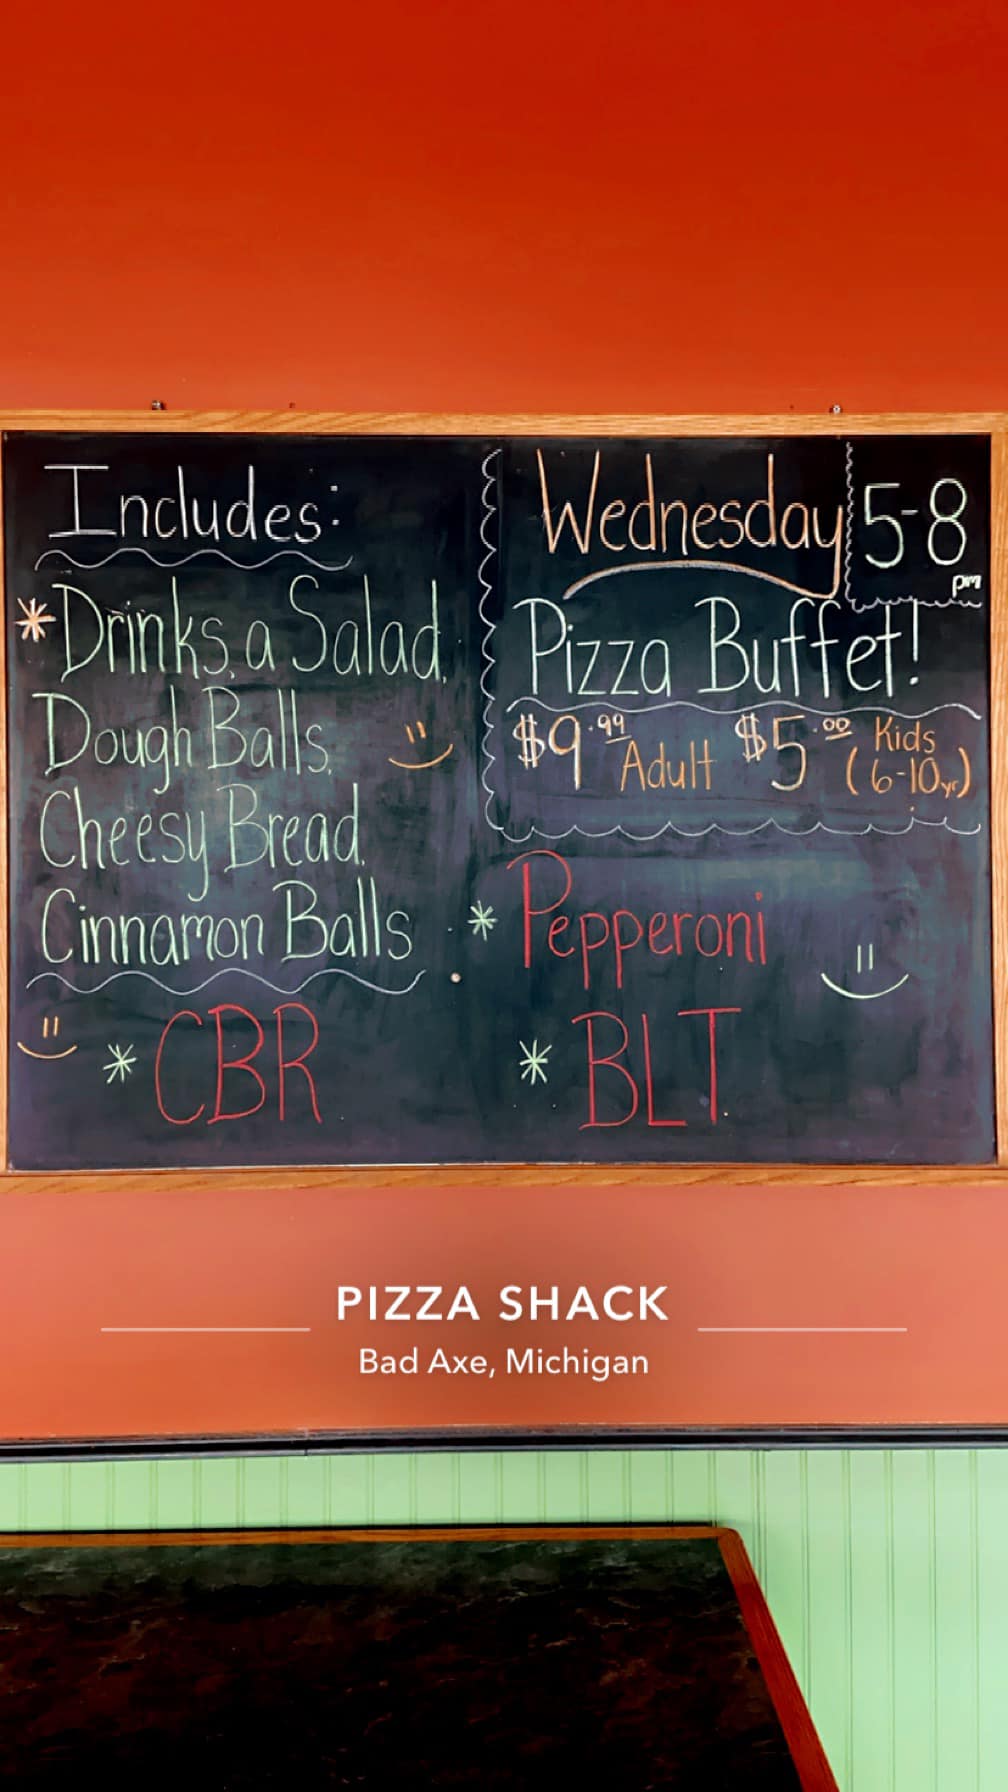 Includes:
*Drinks, a Salad,
Dough Balls,
Cheesy Bread,
Cinnamon Balls
* CBR
Wednesday
5-8
pm
Pizza Buffet!
$9.99 Adult $5.00 Kids
(6-10yr)
* Pepperoni
* BLT
PIZZA SHACK
Bad Axe, Michigan